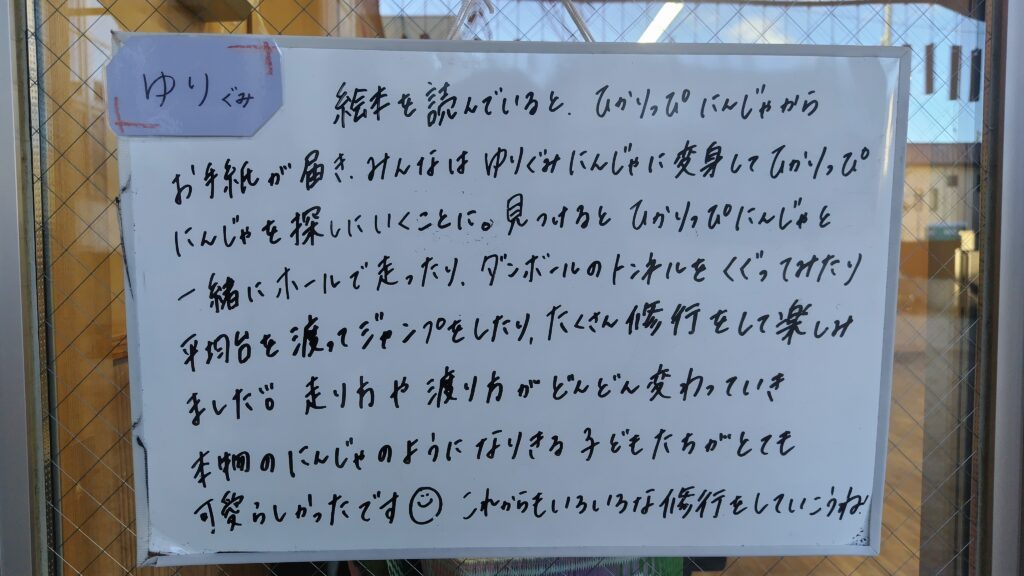 ゆりぐみ
絵本を読んでいると、ひかりっぴにんじゃから
お手紙が届き、みんなはゆりぐみにんじゃに変身してひかりっぴ
にんじゃを探しにいくことに。見つけるとひかりっぴにんじゃと
一緒にホールで走ったり、ダンボールのトンネルをくぐってみたり
平均台を渡ってジャンプをしたり、たくさん修行をして楽しみ
ました!!。走り方や渡り方がどんどん変わっていき
本物のにんじゃのようになりきる子どもたちがとても
可愛らしかったです☺ これからもいろいろな修行をしていこうね